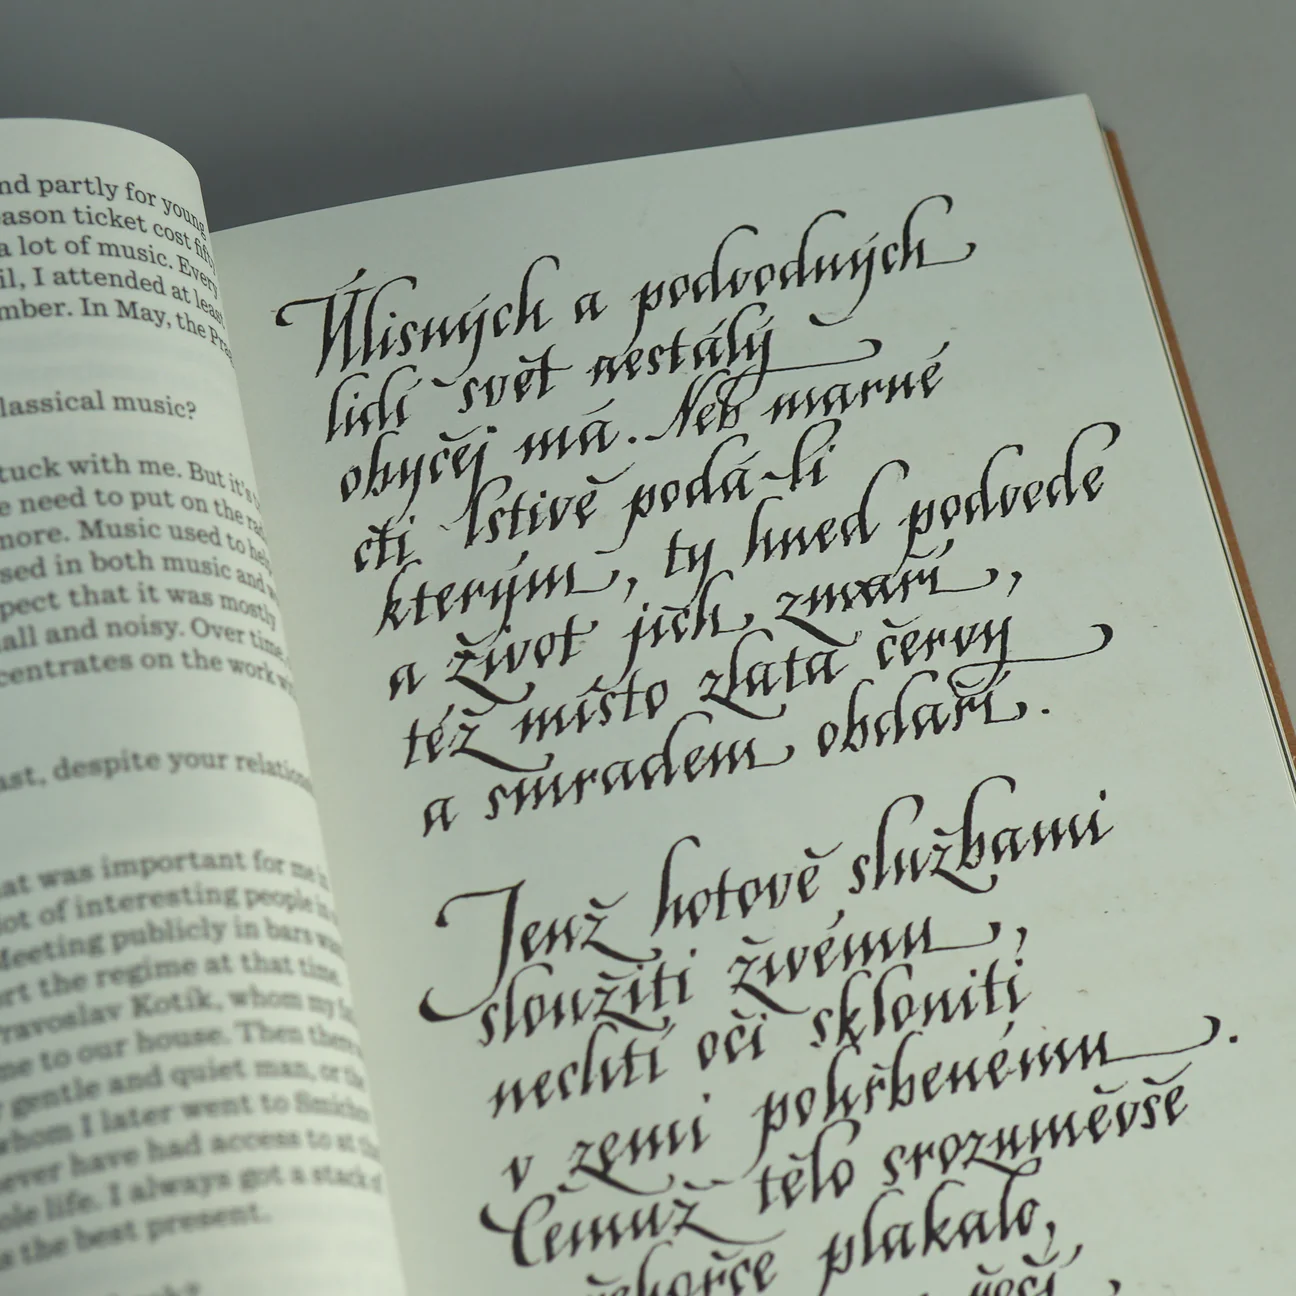 nd partly for young
eason ticket cost fifty
a lot of music. Every
il, I attended at least
mber. In May, the Pra
lassical music?
tuck with me. But it's
e need to put on the rad
more. Music used to help
sed in both music and w
pect that it was mostly
all and noisy. Over time,
centrates on the work wi
ast, despite your relations
at was important for me in
lot of interesting people in a
Meeting publicly in bars was
rt the regime at that time.
ravoslav Kotík, whom my fa
me to our house. Then there
gentle and quiet man, or the
whom I later went to Smíchov
ever have had access to at the
ole life. I always got a stack of
s the best present.
Úlisných a podvodných
lidí svět nestálý
obyčej má. Neb marné
cti lstivě podá-li
kterým, ty hned podvede
a život jich zmaří,
též místo zlata červy
a smradem obdaří.
Jenž hotově službami
sloužiti živému,
nechtí oči skloniti
v zemi pohřbenému.
Čemuž tělo srozuměvše
přehořce plakalo,